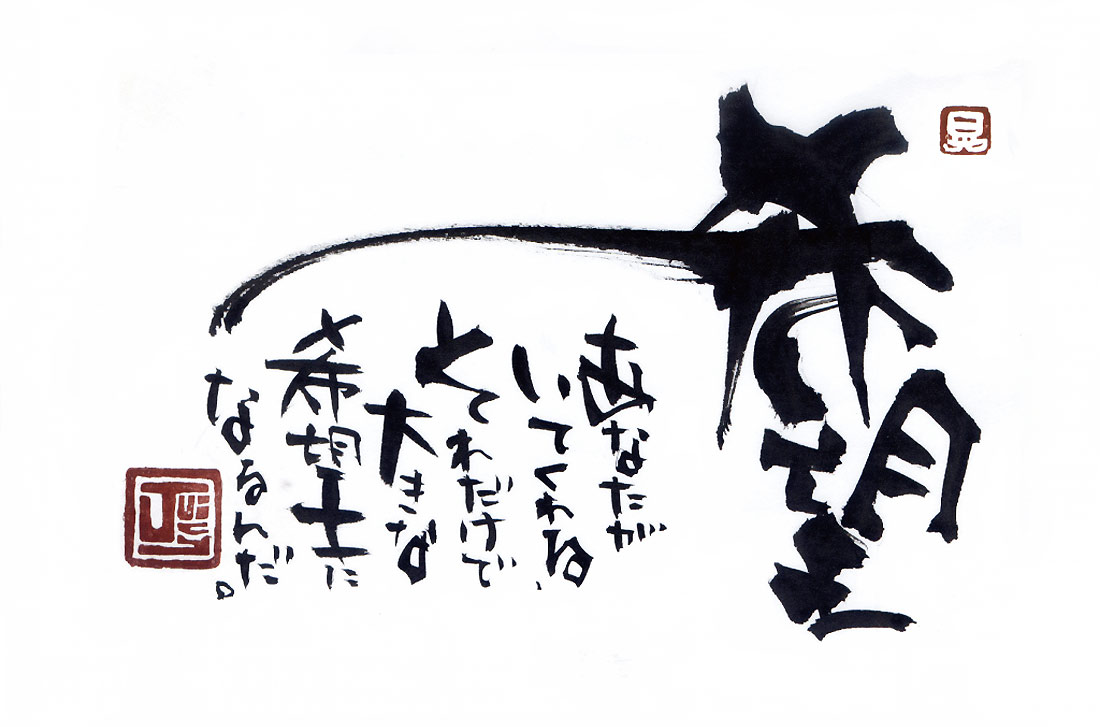 晃
希望
あなたが
いてくれる、
それだけで
大きな
希望に
なるんだ。